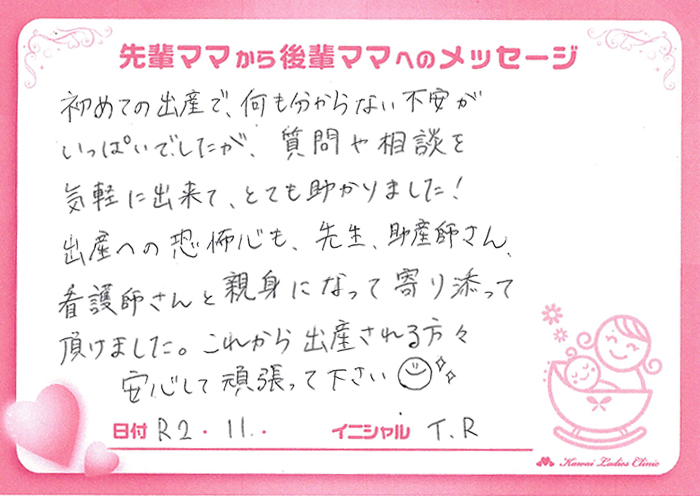 先輩ママから後輩ママへのメッセージ
初めての出産で、何も分からない不安が
いっぱいでしたが、質問や相談を
気軽に出来て、とても助かりました!
出産への恐怖心も、先生、助産師さん、
看護師さんと親身になって寄り添って
頂けました。これから出産される方々
安心して頑張って下さい
日付 R2.11.. イニシャル T.R
Kawai Ladies Clinic